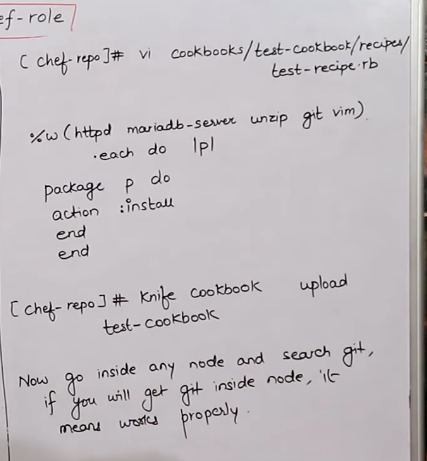 ef-role
[chef-repo]# vi cookbooks/test-cookbook/recipes/
test-recipe.rb
%w(httpd mariadb-server unzip git vim)
.each do |p|
package p do
action :install
end
end
[chef-repo]# Knife cookbook upload
test-cookbook
Now go inside any node and search git,
if you will get git inside node, it
means works properly.